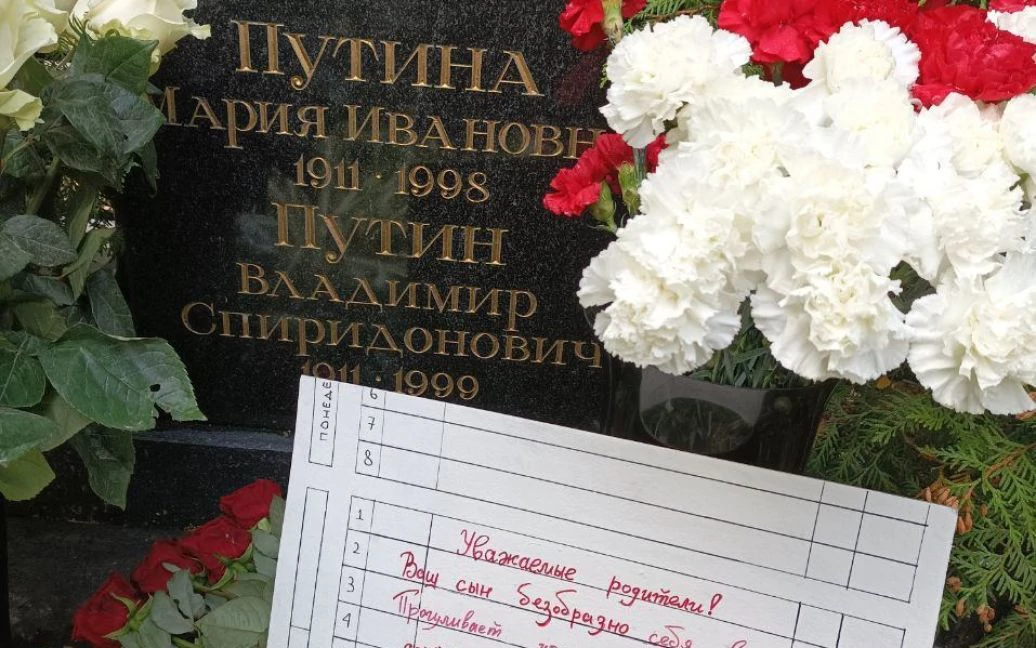 Путина
Мария Иванов
1911 · 1998
Путин
Владимир
Спиридонович
1911 · 1999
ПОНЕДЕ
6
7
8
1
2
3
4
Уважаемые родители!
Ваш сын безобразно себя в
Прогуливает